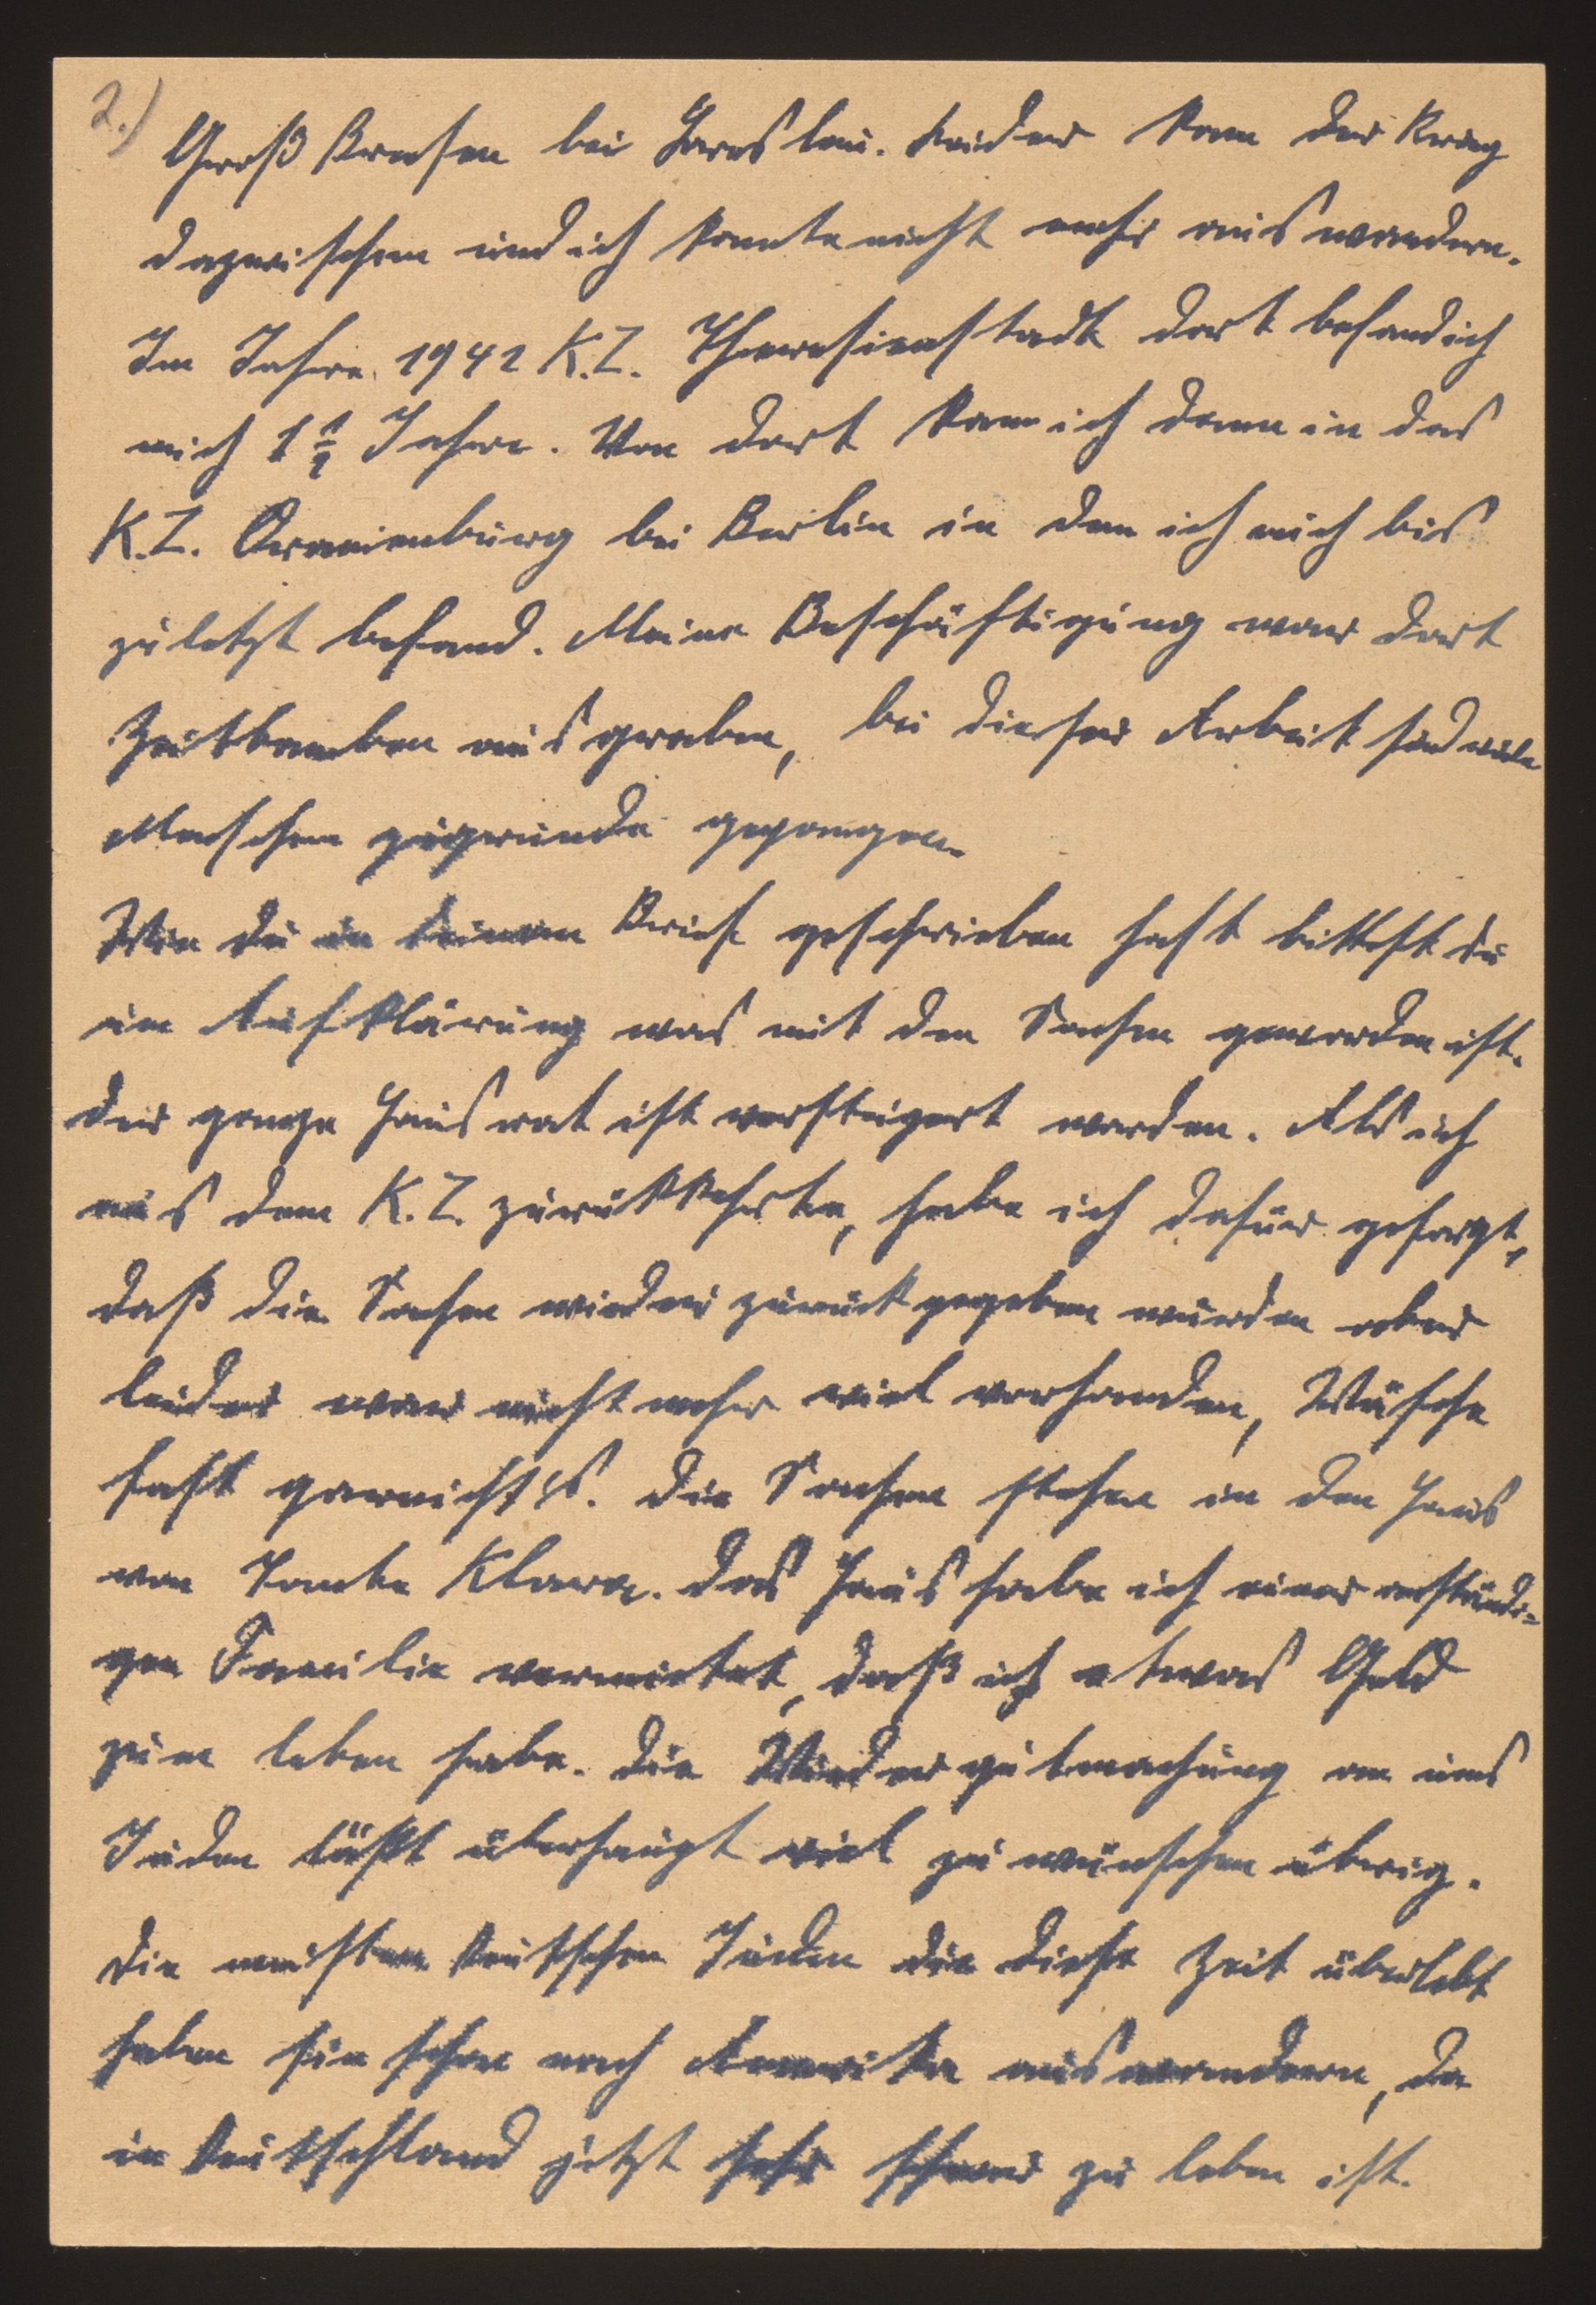 2.)
Groß Breesen bei Breslau. Leider kam der Krieg
dazwischen und ich konnte nicht mehr auswandern.
Im Jahre 1942 K.Z. Theresienstadt dort befand ich
mich 1 1/2 Jahre. Von dort kam ich dann in das
K.Z. Oranienburg bei Berlin in dem ich mich bis
zuletzt befand. Meine Beschäftigung war dort
Zeitbomben ausgraben, bei dieser Arbeit sind viele
Menschen zugrunde gegangen.
Wie du in deinem Brief geschrieben hast bittest du
um Aufklärung was mit den Sachen geworden ist.
der ganze Hausrat ist versteigert worden. Als ich
aus dem K.Z. zurükkehrte, habe ich dafür gesorgt,
daß die Sachen wieder zurückgegeben wurden aber
leider war nicht mehr viel vorhanden, Wäsche
fast garnichts. die Sachen stehen in den Haus
von Tante Klara. das Haus habe ich einer anständi=
gen Familie vermietet, daß ich etwas Geld
zum leben habe. die Wiedergutmachung an uns
Juden läßt überhaupt viel zu wünschen übrig.
die meisten deutschen Juden die diese Zeit überlebt
haben sie schon nach Amerika auswandern, da
in deutschland jetzt sehr schwer zu leben ist.